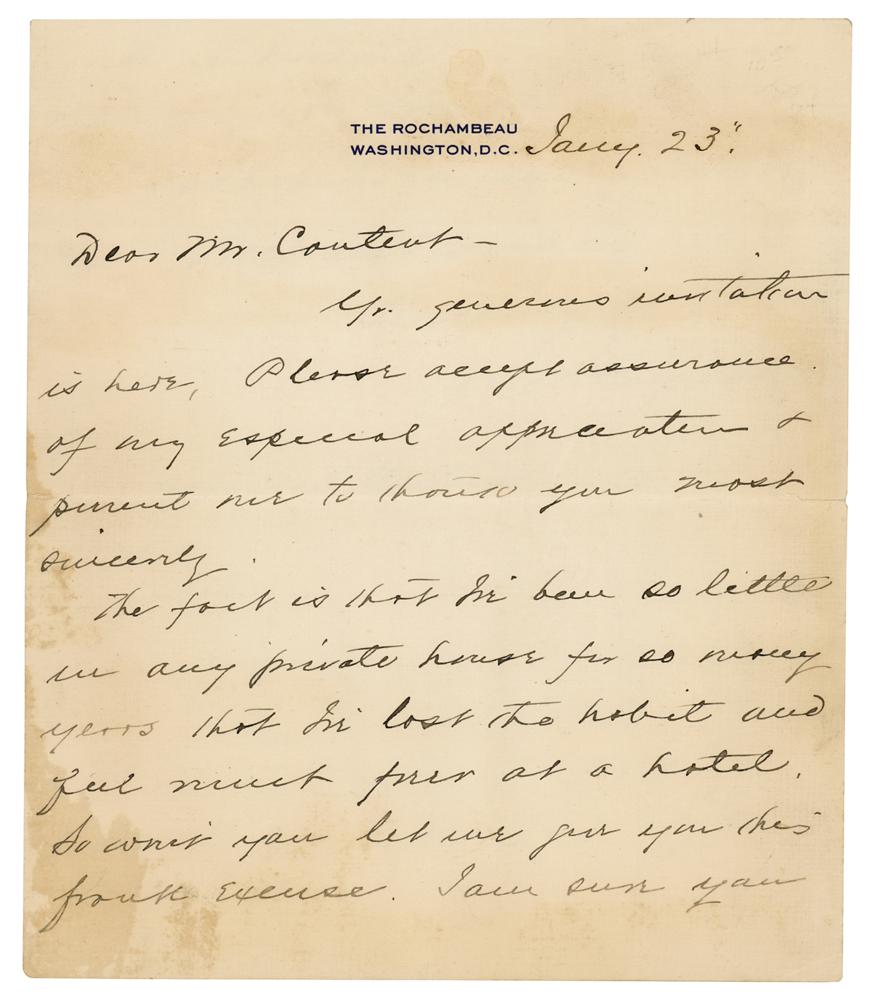 THE ROCHAMBEAU
WASHINGTON, D.C. Jany. 23".
Dear Mr. Content -
Yr. generous invitation
is here, Please accept assurance
of my especial appreciation &
permit me to thank you most
sincerely.
The fact is that I've been so little
in any private house for so many
years that I've lost the habit and
feel much freer at a hotel.
So won't you let me give you this
frank excuse. I am sure you